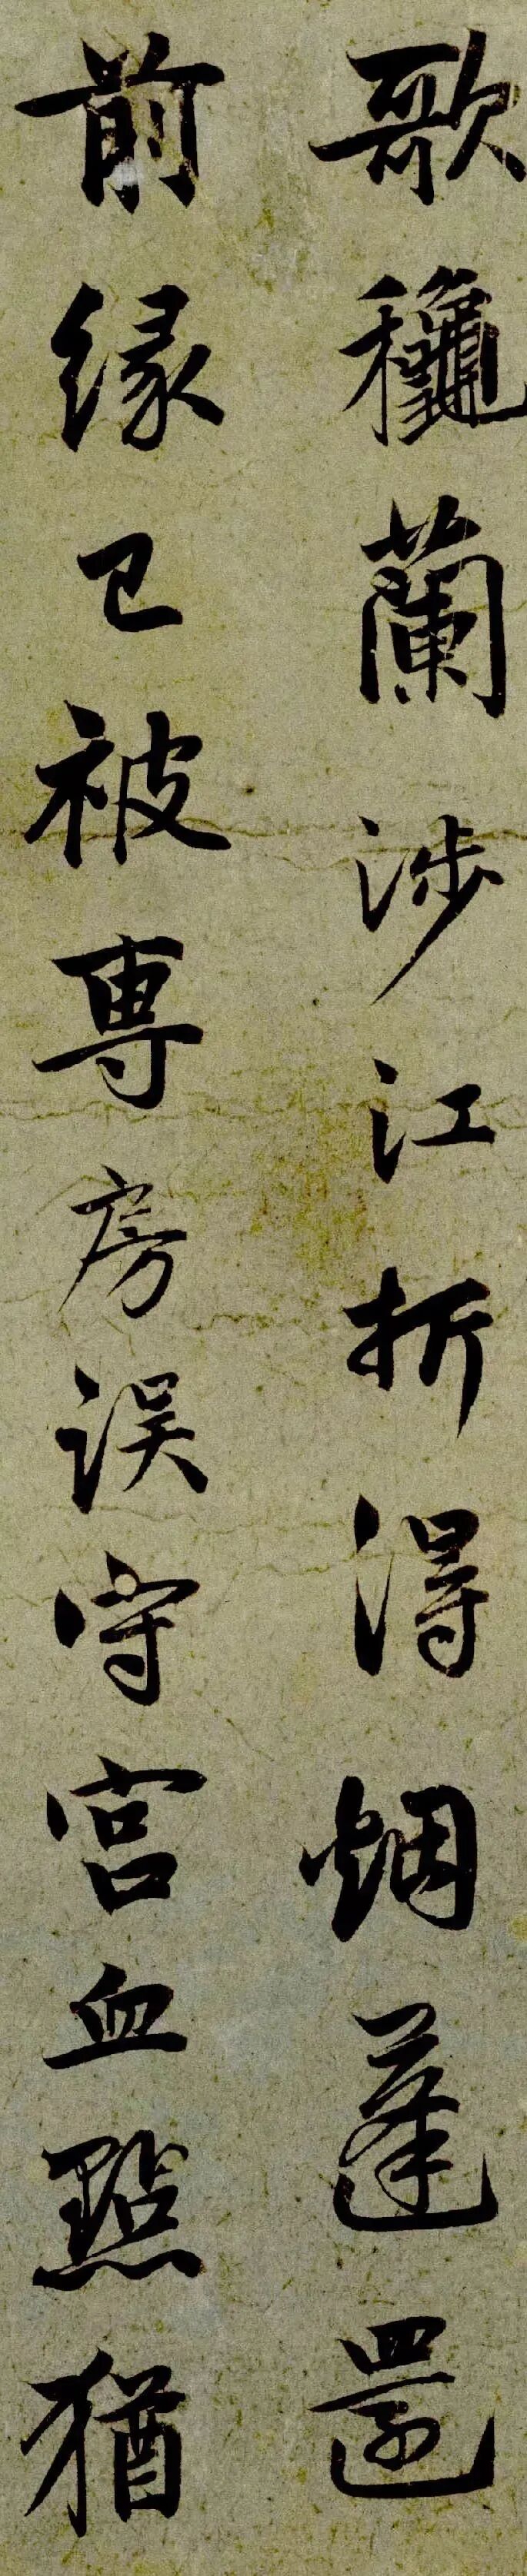 歌龝蘭涉江折得烟蓬還
前緣已被專房誤守宮血點猶